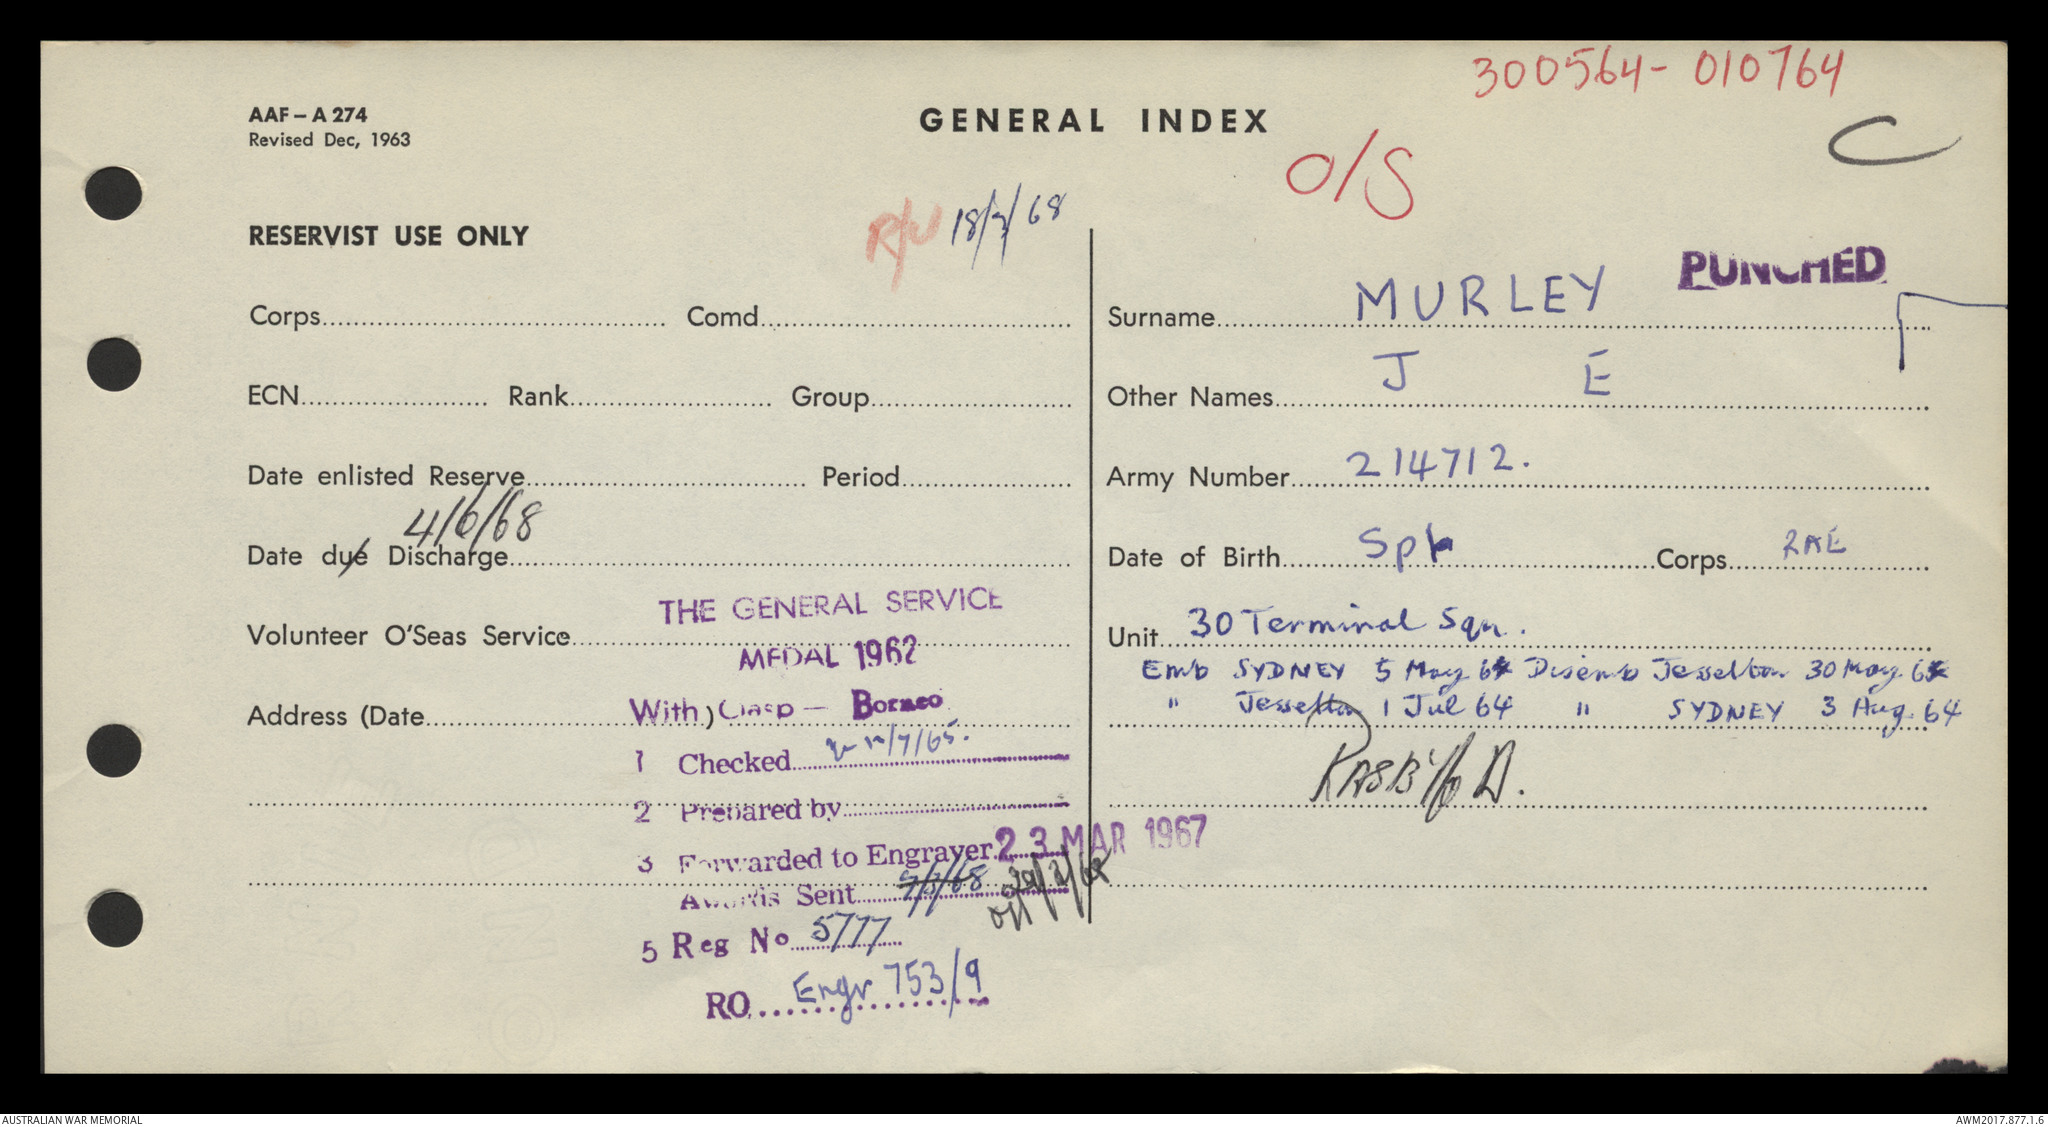 300564 - 010764
AAF – A 274
Revised Dec, 1963
GENERAL INDEX
C
O/S
RESERVIST USE ONLY
R/U 18/7/68
PUNCHED
Corps Comd
Surname MURLEY
ECN Rank Group
Other Names J E
Date enlisted Reserve Period
Army Number 214712.
4/6/68
Date due Discharge
Date of Birth Spr Corps RAE
Volunteer O'Seas Service
THE GENERAL SERVICE
MEDAL 1962
With) Clasp – Borneo
Unit 30 Terminal Sqn.
Emb SYDNEY 5 May 64 Disemb Jesselton 30 May 64
" Jesselton 1 Jul 64 " SYDNEY 3 Aug. 64
Address (Date
1 Checked 12/7/65.
2 Prepared by
3 Forwarded to Engraver 23 MAR 1967
Awards Sent
5 Reg No 5777
RO Engr 753/9
AUSTRALIAN WAR MEMORIAL
AWM2017.877.1.6